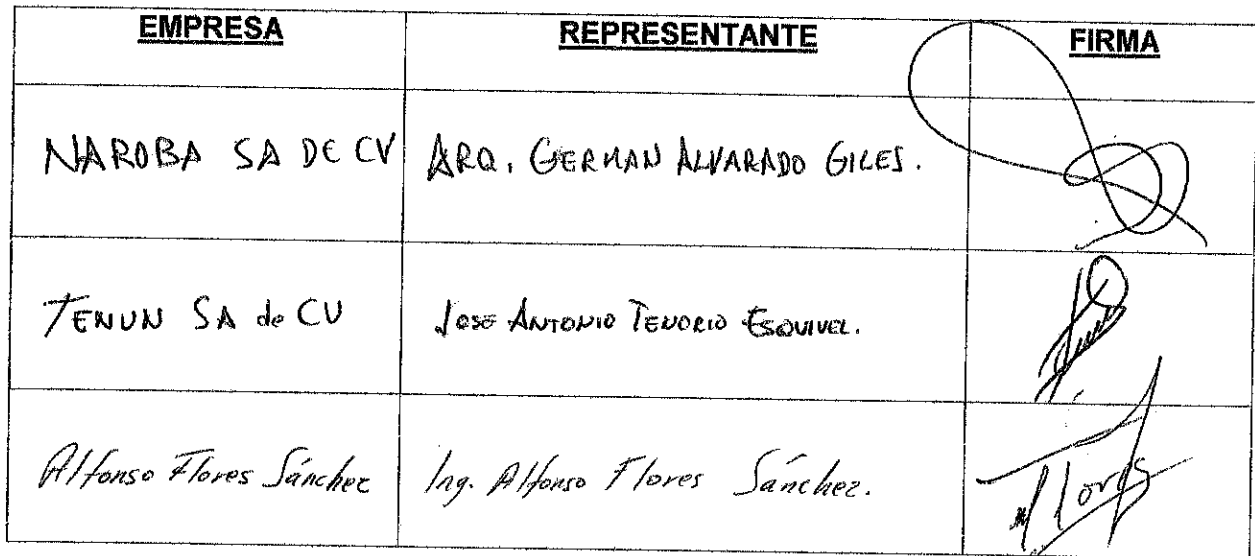 EMPRESA REPRESENTANTE FIRMA
NAROBA SA DE CV ARQ. GERMAN ALVARADO GILES.
TENUN SA de CV JOSE ANTONIO TENORIO ESQUIVEL.
Alfonso Flores Sánchez Ing. Alfonso Flores Sánchez. Flores